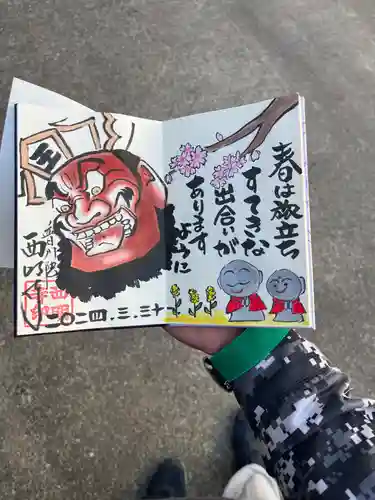 春は旅立ち
すてきな
出会いが
あります
ように
王
西明寺
二〇二四.三.三十一